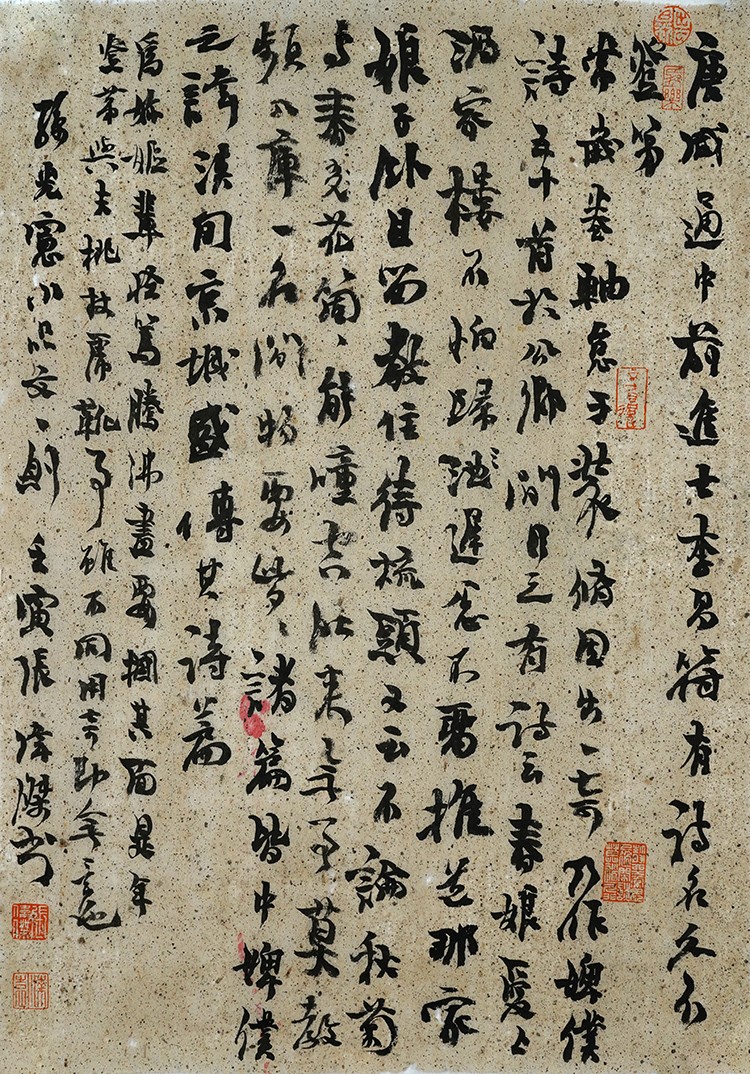 唐咸通中前進士李昌符有詩名久不
登第
常歲卷軸怠于裝脩因出一奇乃作婢僕
詩五十首於公卿間日三有詩云春娘愛上
酒家樓不怕歸遲不留推道那家
娘子臥且留教住待梳頭又云不論秋菊
与春花箇〻能噇空肚無事莫教
頻入庫一名閒物要些〻諸篇皆中婢僕
之諱浹旬京城盛傳其詩篇
為妳嫗輩怪罵騰沸盡要摑其面是年
登第與夫桃杖虎靴事雖不同用奇
孫光憲文一則 壬寅張偉傑書